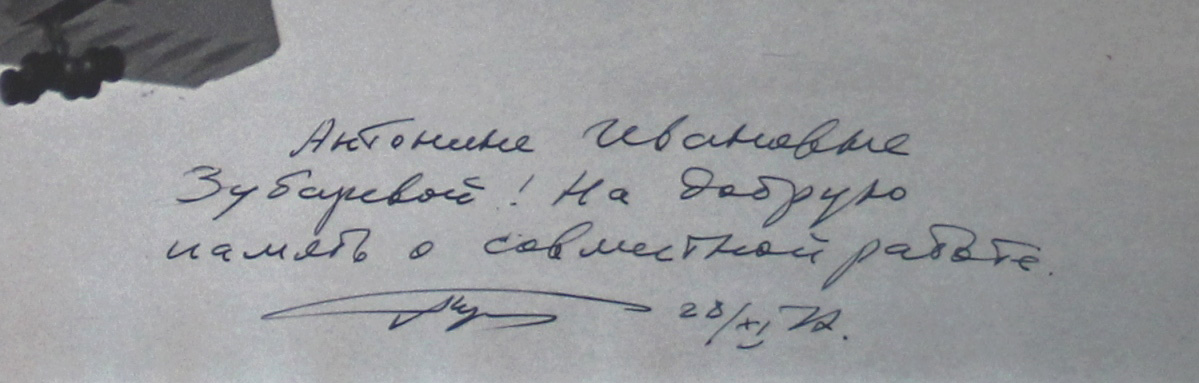 Антонине Ивановне
Зубаревой! На добрую
память о совместной работе.
28/XI 72.